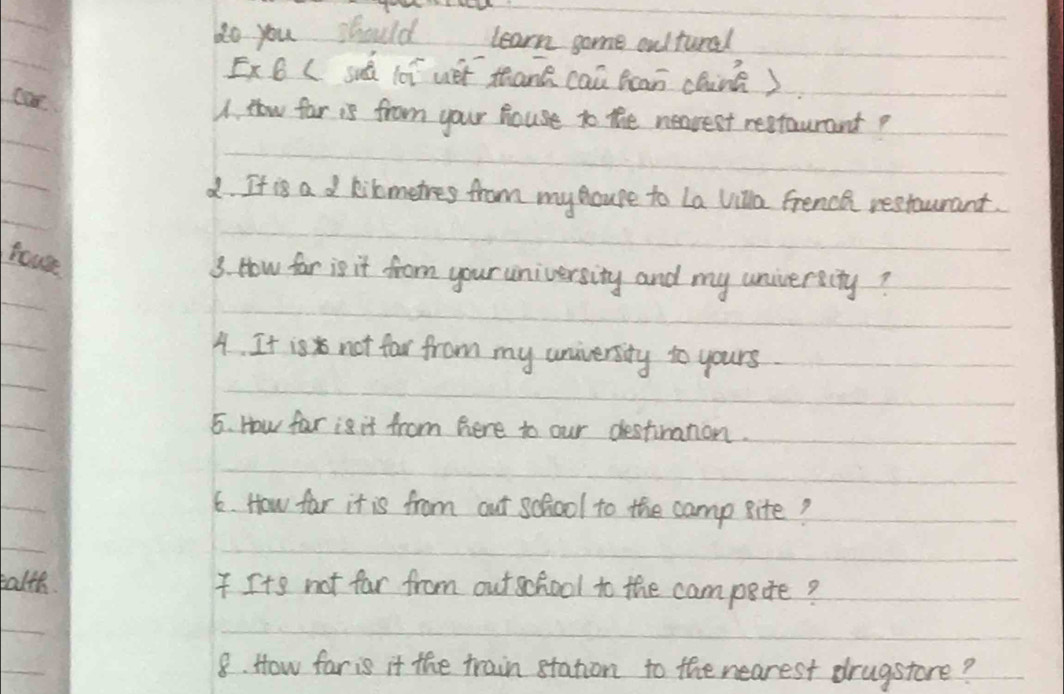 20 you should learn some cultural
Ex 6 ( sửa lỗi viết thành câu hoàn chỉnh ).
car.
1. How far is from your house to the nearest restaurant ?
2. It is a 2 kilometres from my house to La Villa French restaurant.
house
3. How far is it from your university and my university ?
4. It is not far from my university to yours
5. How far is it from here to our destination.
6. How far it is from out school to the camp site ?
ealth.
7 It's not far from out school to the campsite ?
8. How far is it the train station to the nearest drugstore ?